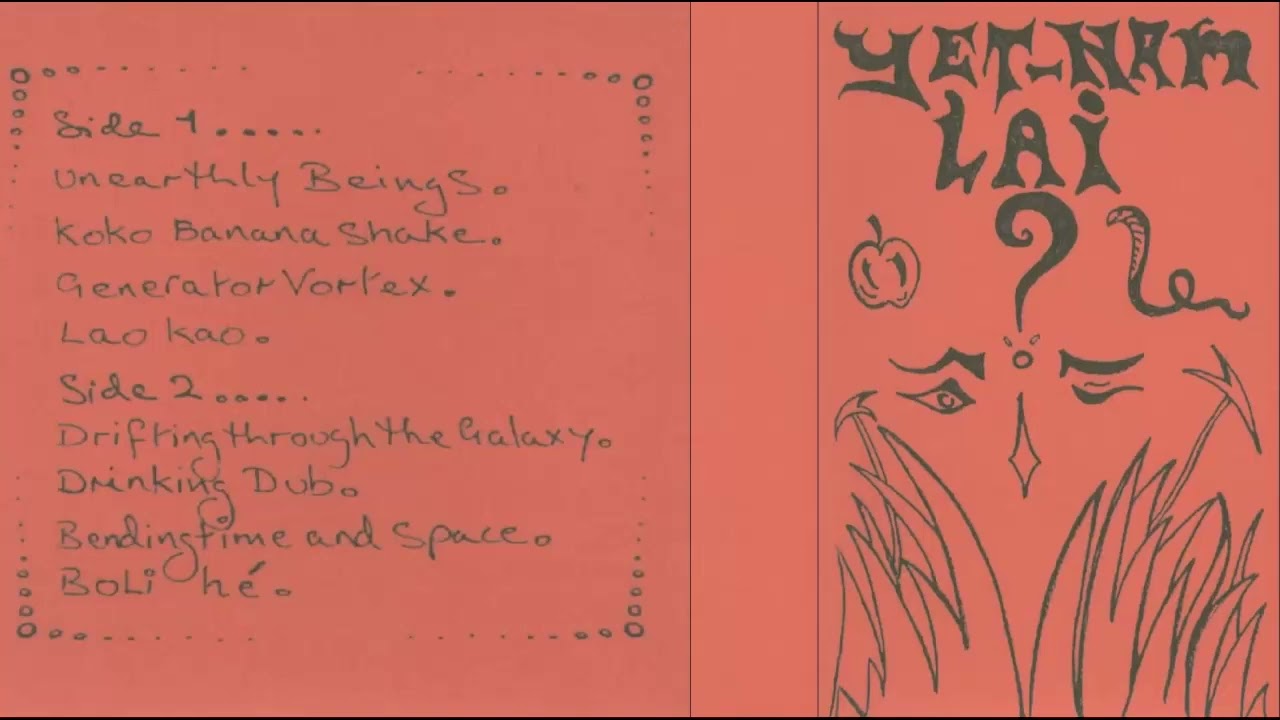 Side 1.....
Unearthly Beings.
Koko Banana Shake.
Generator Vortex.
Lao Kao.
Side 2.....
Drifting through the Galaxy.
Drinking Dub.
Bending time and Space.
Boli hé.
YET-NAM
LAi
?